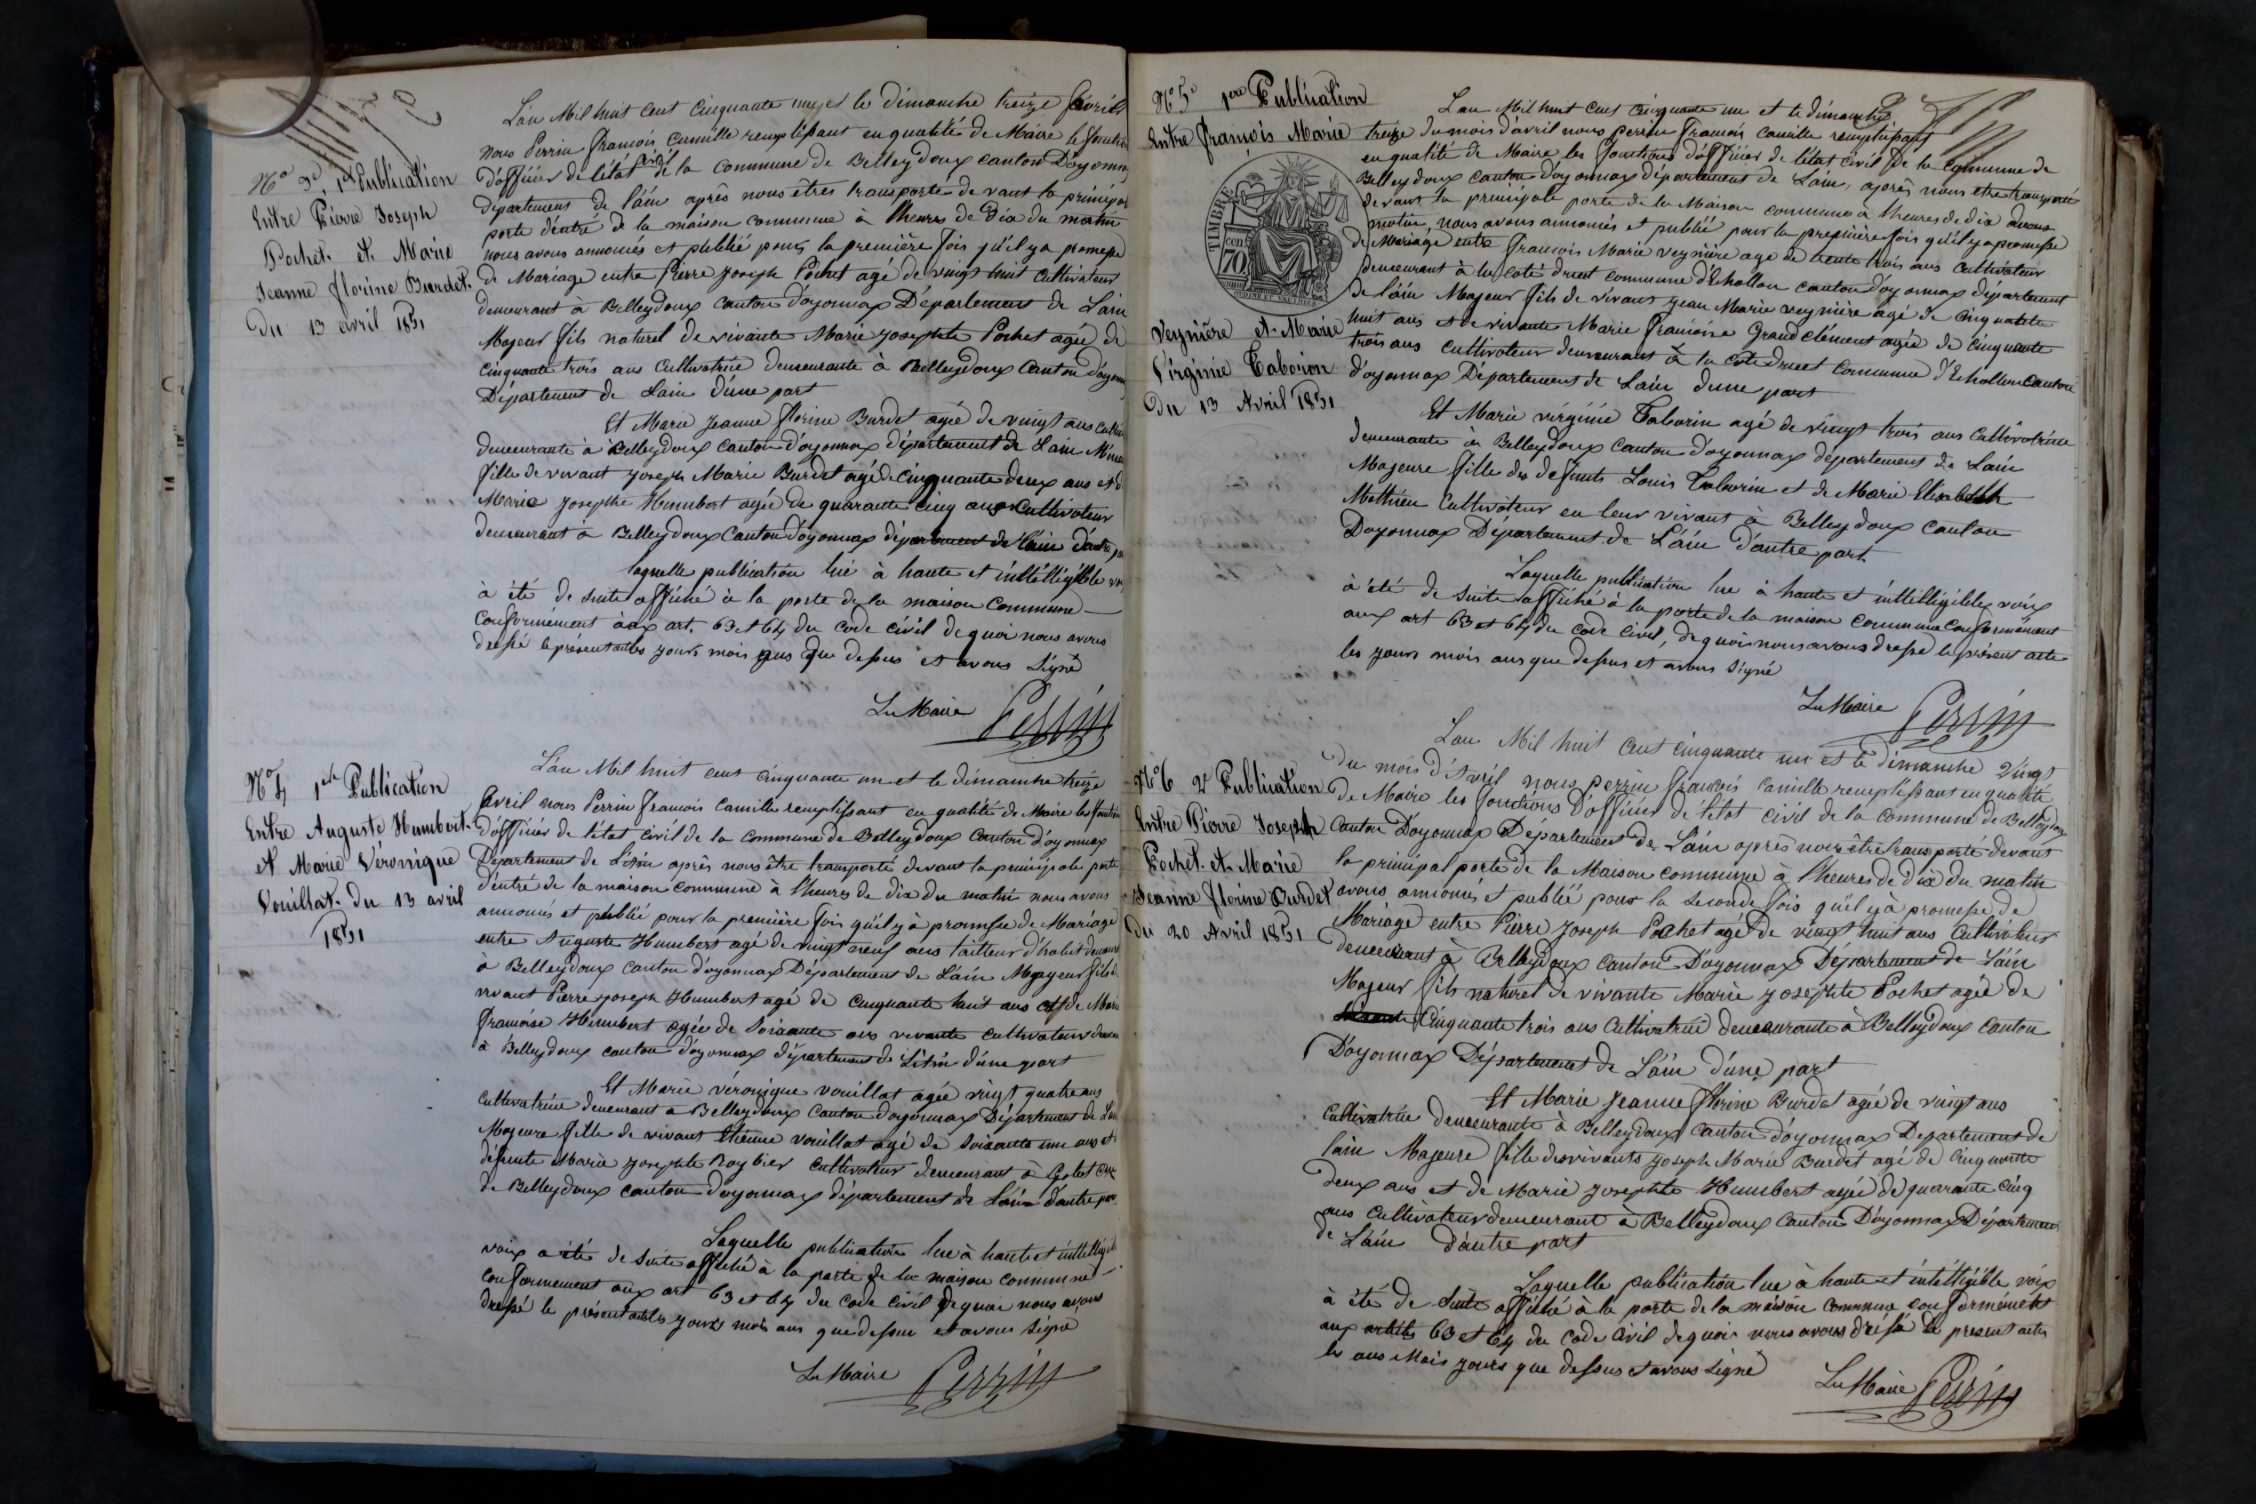 No 3e 1re Publication
Entre Pierre Joseph
Pochet. et. Marie
Jeanne florine Burdet.
Du 13 avril 1851
L'an Mil huit cent cinquante un et le dimanche treize avril
nous Perrin françois Camille remplissant en qualité de Maire le fonction
d'officier de l'état civil de la Commune de Belleydoux canton D'oyonnax
departement de l'ain après nous êtres transporté devant la principale
porte d'entré de la maison commune à l'heures de Dix du matin
nous avons annoncés et publié pour la première fois qu'il y a promesse
de Mariage entre Pierre Joseph Pochet agé de vingt huit Cultivateur
demeurant à Belleydoux canton d'oyonnax Département de L'ain
Majeur fils naturel de vivante Marie josephte Pochet agée de
cinquante trois ans Cultivatrice demeurante à Belleydoux Canton d'oyonnax
Département de Lain d'une part
Et Marie Jeanne florine Burdet agée de vingt ans
demeurante à Belleydoux canton d'oyonnax département de Lain
fille de vivant Joseph Marie Burdet agé de cinquante deux ans et de
Marie Josephte Humbert agée de quarante cinq ans Cultivateur
demeurant à Belleydoux Canton d'oyonnax département de l'ain d'autre
laquelle publication lue à haute et inttélligible
à été de suite affiché à la porte de la maison Commune
Conformément aux art. 63 et 64 du code civil de quoi nous avons
dressé le présent acte les jours mois ans que dessus et avons Signé
Le Maire Perrin
No 4 1re Publication
Entre Auguste Humbert.
et Marie Véronique
Vouillat. du 13 avril
1851
L'an Mil huit cent cinquante un et le dimanche treize
avril nous Perrin francois Camille remplissant en qualité de Maire les
d'officier de l'état civil de la Commune de Belleydoux Canton d'oyonnax
Département de L'Ain après nous être transporté devant la principale porte
d'entré de la maison commune à l'heures de dix du matin nous avons
annoncés et publié pour la première fois qu'il y à promesse de Mariage
entre Auguste Humbert agé de vingt neuf ans tailleur d'habit
à Belleydoux canton d'oyonnax Département de L'ain Majeur fils de
vivant Pierre joseph Humbert agé de cinquante huit ans et de Marie
françoise Humbert agée de Soixante ans vivante cultivateur
à Belleydoux canton d'oyonnax département de L'Ain d'une part
Et Marie véronique vouillat agée vingt quatre ans
Cultivatrice demeurant a Belleydoux Canton d'oyonnax Département de
Majeure fille de vivant Etienne vouillat agé de Soixante une ans et
défunte Marie Josephte Roybier Cultivateur demeurant à
de Belleydoux canton d'oyonnax département de l'ain d'autre
Laquelle publication lue à haute et
voix a été de suite affiché à la porte de la maison commune
conformement aux art 63 et 64 du Code civil de quoi nous avons
dressé le présent acte les jours mois ans que dessus et avons signé
Le Maire Perrin
No 5e 1re Publication
Entre François Marie
TIMBRE
cen 70
Veynière et. Marie
Virginie Taborin
Du 13 Avril 1851
L'an Mil huit cent cinquante un et le dimanche
treize du mois d'avril nous perrin francois camille remplissant
en qualité de Maire les fonctions d'officier de l'état civil de la Commune de
Belleydoux canton d'oyonnax département de Lain, après nous etre transporté
devant la principale porte de la Maison commune à l'heures de dix
matin, nous avons annoncés et publié pour la première fois qu'il y a promesse
de Mariage entre francois Marie veynière agé de trente trois ans Cultivateur
demeurant à la coté commune d'Echallon canton d'oyonnax département
de l'ain Majeur fils de vivant jean Marie veynière agé de cinquante
huit ans et de vivante Marie françoise Grand clément agée de cinquante
trois ans cultivateur demeurant à la cote Commune d'Echallon canton
d'oyonnax Departement de Lain d'une part
Et Marie virginie Taborin agé de vingt trois ans Cultivatrice
demeurante à Belleydoux canton d'oyonnax département de Lain
Majeure fille des defunts Louis Taborin et de Marie Elisabeth
Mathieu Cultivateur en leur vivant à Belleydoux canton
D'oyonnax Département de L'ain d'autre part
Laquelle publication lue à haute et inttélligible voix
à été de suite affiché à la porte de la maison commune conformément
aux art 63 et 64 du code civil, de quoi nous avons dressé le présent acte
les jours mois ans que dessus et avons signé
Le Maire Perrin
No 6 2e Publication
Entre Pierre Joseph
Pochet. et. Marie
Jeanne florine Burdet
du 20 Avril 1851
L'an Mil huit cent cinquante un et le dimanche Vingt
du mois d'Avril nous perrin francois camille remplissant en qualité
de Maire les fonctions D'officier de l'état civil de la commune de Belleydoux
Canton D'oyonnax Département de L'ain après nous être transporté devant
la principal porte de la Maison commune à l'heures de dix du matin
avons annoncés et publié pour la Seconde fois qu'il y à promesse de
Mariage entre Pierre Joseph Pochet agé de vingt huit ans Cultivateur
demeurant à Belleydoux canton D'oyonnax Département de L'ain
Majeur fils naturel de vivante Marie josephte Pochet agée de
Cinquante trois ans Cultivatrice demeurante à Belleydoux Canton
D'oyonnax Département de L'ain d'une part
Et Marie Jeanne florine Burdet agée de vingt ans
Cultivatrice demeurante à Belleydoux canton d'oyonnax Departement de
lain Majeure fille des vivants joseph Marie Burdet agé de cinquante
deux ans et de Marie josephte Humbert agée de quarante cinq
ans Cultivateur demeurant à Belleydoux Canton D'oyonnax Département
de L'ain d'autre part
Laquelle publication lue à haute et intélligible voix
à été de Suite affiché à la porte de la maison commune conformément
aux articles 63 et 64 du Code civil de quoi nous avons dréssé le présent acte
les ans Mois jours que dessus et avons Signé
Le Maire Perrin